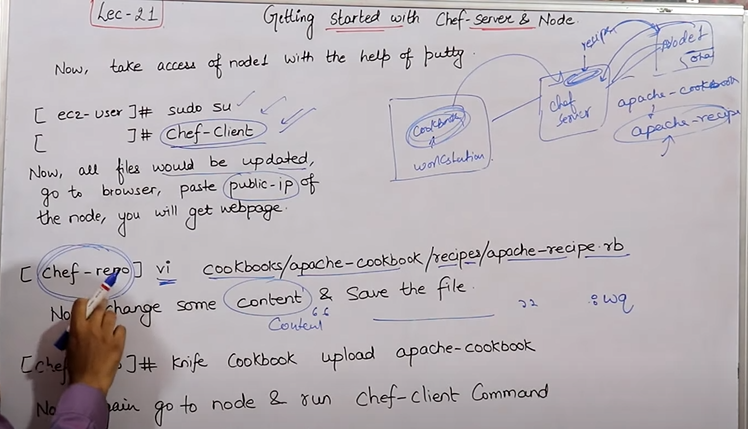 Lec-21
Getting started with Chef-Server & Node.
Now, take access of node1 with the help of putty.
[ ec2-user ]# sudo su
[ ]# Chef-Client
Now, all files would be updated,
go to browser, paste public-ip of
the node, you will get webpage.
recipe
Node1
Chef
Server
Cookbook
workstation
apache-cookbook
apache-recipe
[chef-repo] vi cookbooks/apache-cookbook/recipes/apache-recipe.rb
change some content & Save the file.
Content " " :wq
]# Knife Cookbook upload apache-cookbook
go to node & run Chef-client Command